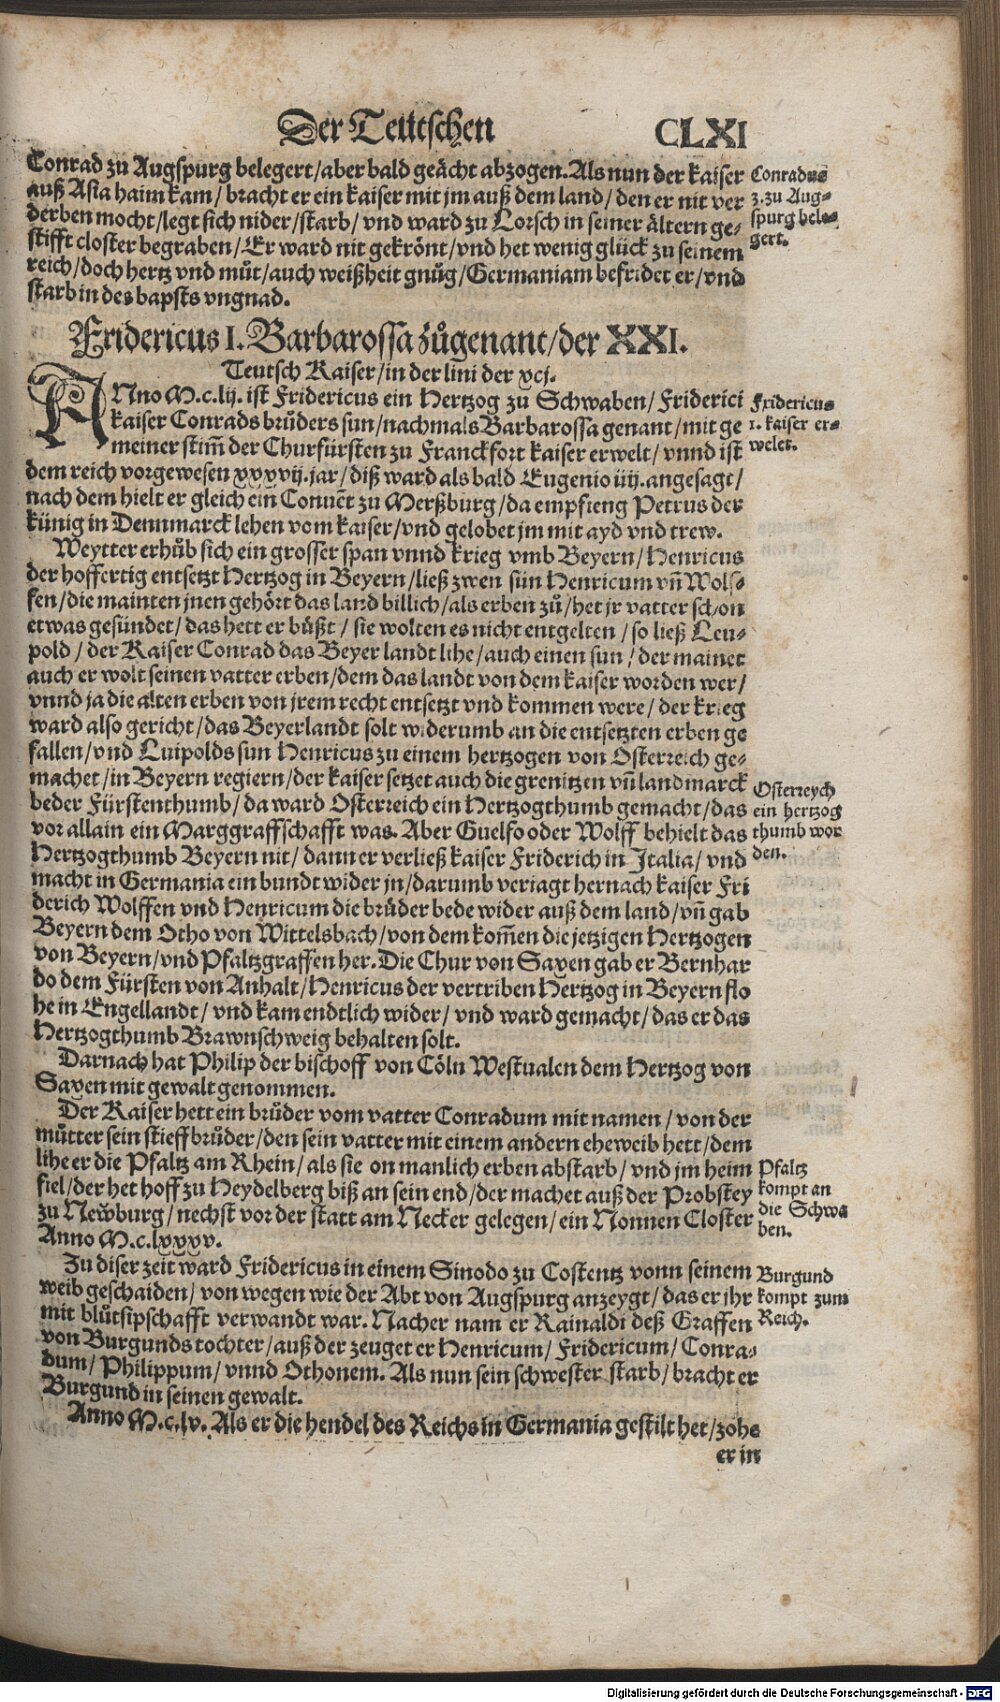 Der Teütschen
CLXI
Conrad zu Augspurg belegert/aber bald geächt abzogen. Als nun der kaiser
auß Asia haim kam/ bracht er ein kaiser mit jm auß dem land/ den er nit ver
derben mocht/legt sich nider/starb/ vnd ward zu Lorsch in seiner ältern ge⸗
stifft closter begraben/ Er ward nit gekrönt/vnd het wenig glück zu seinem
reich/doch hertz vnd můt/auch weißheit gnůg/Germaniam befridet er/vnd
starb in des bapsts vngnad.
Conradus
3. zu Aug⸗
spurg bele⸗
gert.
Fridericus I. Barbarossa zůgenant/der XXI.
Teutsch Kaiser/in der lini der xcj.
ANno M.c.lij. ist Fridericus ein Hertzog zu Schwaben/ Friderici
kaiser Conrads brůders sun/nachmals Barbarossa genant/mit ge
meiner stim̃ der Churfürsten zu Franckfort kaiser erwelt/ vnnd ist
dem reich vorgewesen xxxvij. jar/ diß ward als bald Eugenio iiij. angesagt/
nach dem hielt er gleich ein Conuẽt zu Merßburg/ da empfieng Petrus der
künig in Dennmarck lehen vom kaiser/vnd gelobet jm mit ayd vnd trew.
Fridericus
1. kaiser er⸗
welet.
Weytter erhůb sich ein grosser span vnnd krieg vmb Beyern/ Henricus
der hoffertig entsetzt Hertzog in Beyern/ließ zwen sün Henricum vñ Wolf⸗
fen/die mainten jnen gehört das land billich/als erben zů/het jr vatter schon
etwas gesündet/ das hett er bůßt/ sie wolten es nicht entgelten/ so ließ Leu⸗
pold/ der Kaiser Conrad das Beyer landt lihe/auch einen sun/ der mainet
auch er wolt seinen vatter erben/dem das landt von dem kaiser worden wer/
vnnd ja die alten erben von jrem recht entsetzt vnd kommen were/ der krieg
ward also gericht/das Beyerlandt solt widerumb an die entsetzten erben ge
fallen/vnd Luipolds sun Henricus zu einem hertzogen von Osterreich ge⸗
machet/in Beyern regiern/der kaiser setzet auch die grenitzen vñ landmarck
beder Fürstenthumb/ da ward Osterreich ein Hertzogthumb gemacht/das
vor allain ein Marggraffschafft was. Aber Guelfo oder Wolff behielt das
Hertzogthumb Beyern nit/ dann er verließ kaiser Friderich in Italia/ vnd
macht in Germania ein bundt wider jn/darumb verjagt hernach kaiser Fri
derich Wolffen vnd Henricum die brüder bede wider auß dem land/vñ gab
Beyern dem Otho von Wittelsbach/von dem kom̃en die jetzigen Hertzogen
von Beyern/vnd Pfaltzgraffen her. Die Chur von Saxen gab er Bernhar
do dem Fürsten von Anhalt/Henricus der vertriben Hertzog in Beyern flo
he in Engellandt/ vnd kam endtlich wider/ vnd ward gemacht/das er das
Hertzogthumb Brawnschweig behalten solt.
Osterreych
ein hertzog
thumb wor
den.
Darnach hat Philip der bischoff von Cöln Westualen dem Hertzog von
Saxen mit gewalt genommen.
Der Kaiser hett ein brůder vom vatter Conradum mit namen/ von der
můtter sein stieffbrůder/den sein vatter mit einem andern eheweib hett/dem
lihe er die Pfaltz am Rhein/ als sie on manlich erben abstarb/ vnd jm heim
fiel/der het hoff zu Heydelberg biß an sein end/der machet auß der Probstey
zu Newburg/ nechst vor der statt am Necker gelegen/ein Nonnen Closter
Anno M.c.lxxxv.
Pfaltz
kompt an
die Schwa
ben.
Zu diser zeit ward Fridericus in einem Sinodo zu Costentz vonn seinem
weib geschaiden/ von wegen wie der Abt von Augspurg anzeygt/das er jhr
mit blůtsipschafft verwandt war. Nacher nam er Rainaldi deß Graffen
von Burgunds tochter/auß der zeuget er Henricum/ Fridericum/ Conra⸗
dum/ Philippum/ vnnd Othonem. Als nun sein schwester starb/ bracht er
Burgund in seinen gewalt.
Burgund
kompt zum
Reich.
Anno M.c.lv. Als er die hendel des Reichs in Germania gestilt het/zohe
er in
Digitalisierung gefördert durch die Deutsche Forschungsgemeinschaft - DFG